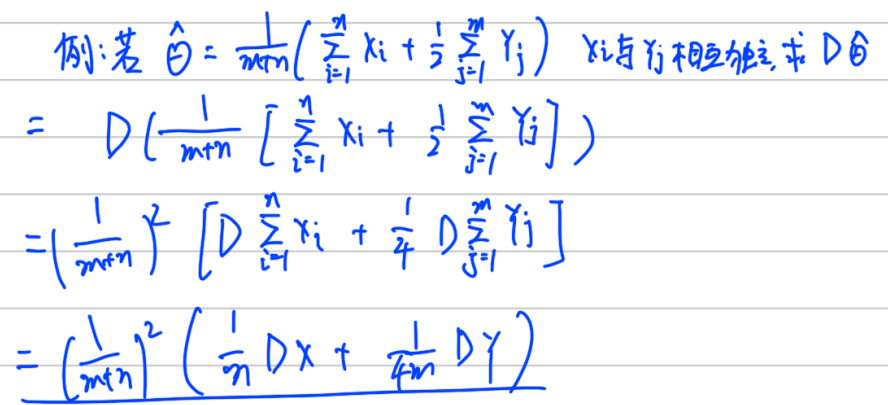 例:若 θ̂ = 1/(m+n) ( ∑_{i=1}^{n} Xi + 1/2 ∑_{j=1}^{m} Yj ) Xi与Yj相互独立,求 Dθ̂
= D( 1/(m+n) [ ∑_{i=1}^{n} Xi + 1/2 ∑_{j=1}^{m} Yj ] )
= ( 1/(m+n) )² [ D ∑_{i=1}^{n} Xi + 1/4 D ∑_{j=1}^{m} Yj ]
= ( 1/(m+n) )² ( 1/n DX + 1/4m DY )